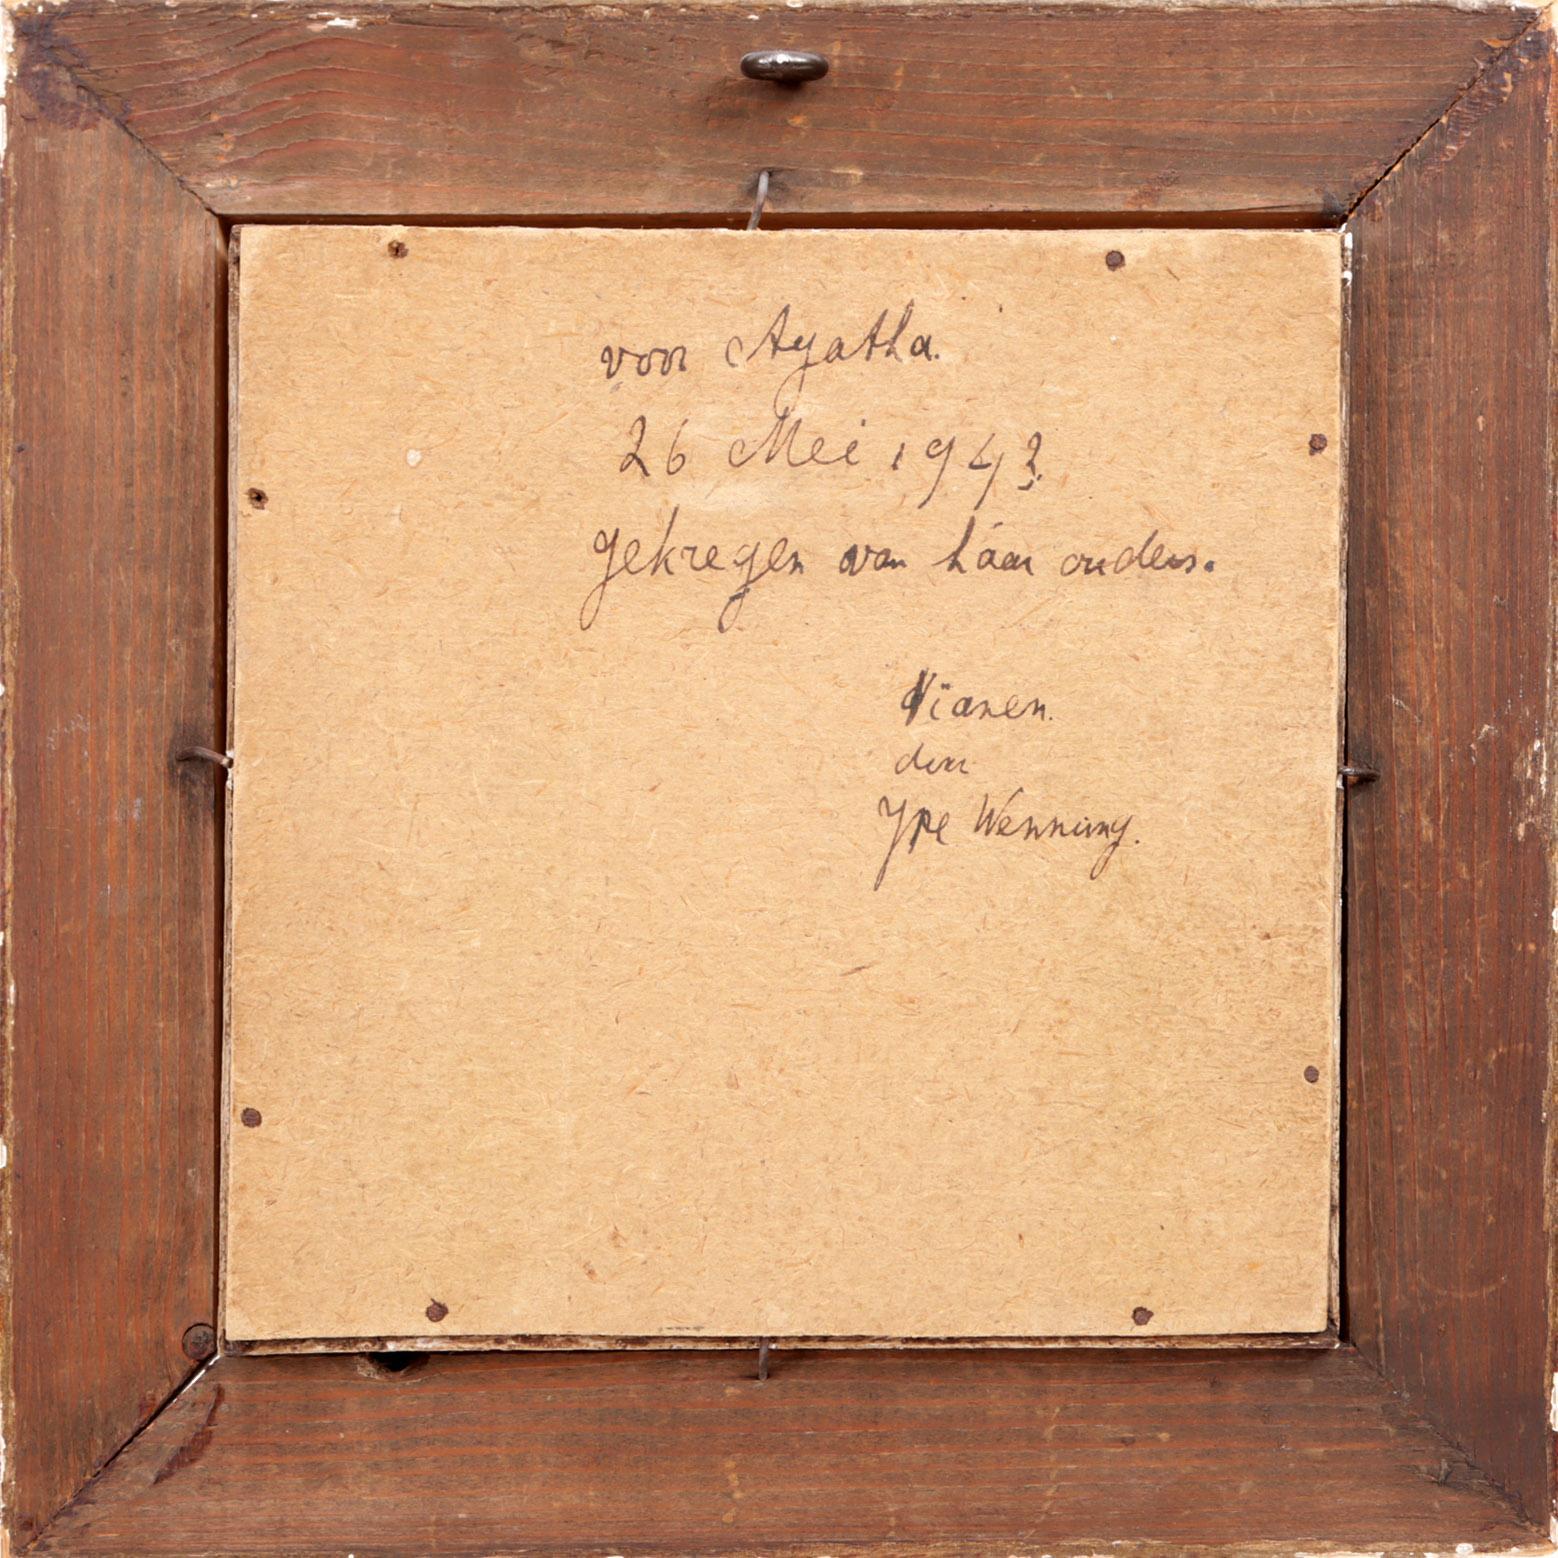 voor Agatha.
26 Mei 1943.
gekregen van háár ouders.
Vianen.
door
Ype Wenning.